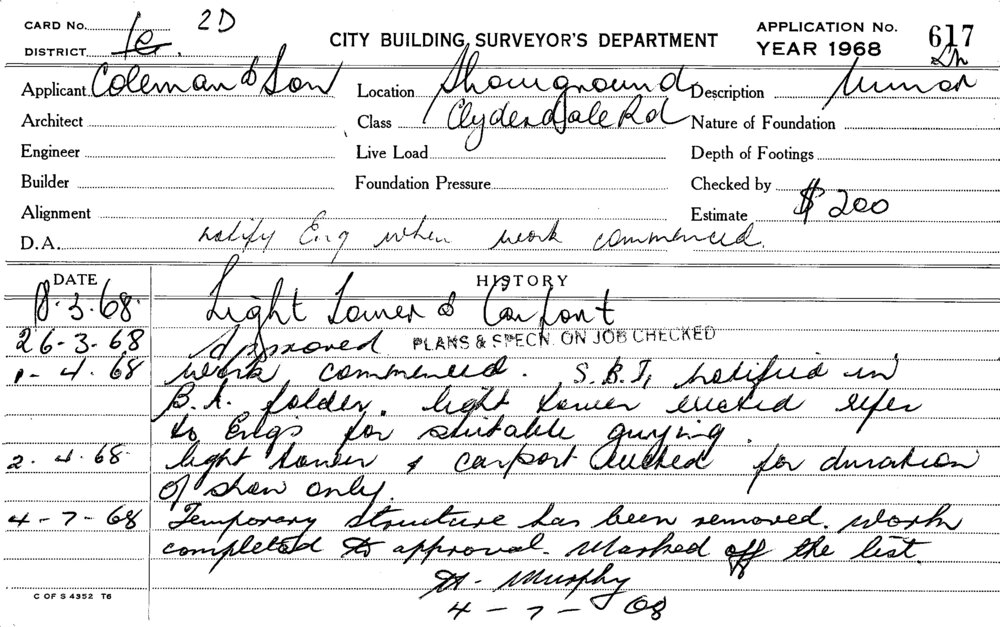 CARD No. 2D
APPLICATION No. 617
DISTRICT 1c
CITY BUILDING SURVEYOR'S DEPARTMENT
YEAR 1968
Applicant Coleman & Son
Location Showground
Description Minor
Architect
Class Clydesdale Rd
Nature of Foundation
Engineer
Live Load
Depth of Footings
Builder
Foundation Pressure
Checked by
Alignment
Estimate $200
D.A. notify Eng when work commenced.
DATE HISTORY
8.3.68. Light Tower & Carport
26-3-68 Approved PLANS & SPECN. ON JOB CHECKED
1-4.68 work commenced. S.B.I. notified in
B.A. folder. light tower erected refer
to Engs for suitable guying
2.4.68. light tower & carport erected for duration
of show only.
4-7-68 Temporary structure has been removed. Work
completed to approval. Marked off the list.
Murphy
4-7-68
C OF S 4352 T6